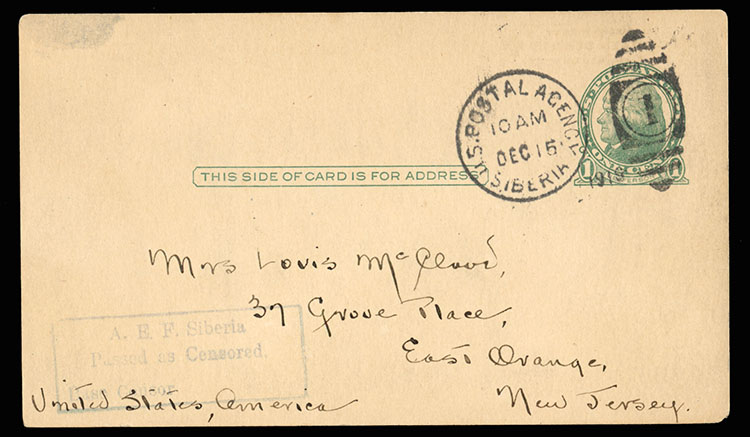 U.S. POSTAL AGENCY
10 AM
DEC 15
SIBERIA
1919
1
THIS SIDE OF CARD IS FOR ADDRESS
Mrs Louis
37 Grove Place,
East Orange,
New Jersey.
A. E. F. Siberia
Passed as Censored.
Base Censor
United States, America